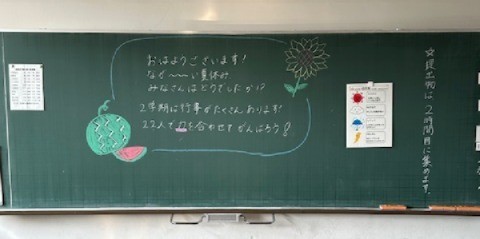 おはようございます!
なが〜〜い夏休み
みなさんはどうでしたか!?
2学期は行事がたくさんあります!
22人で力を合わせて がんばろう!
☆提出物は2時間目に集めます。